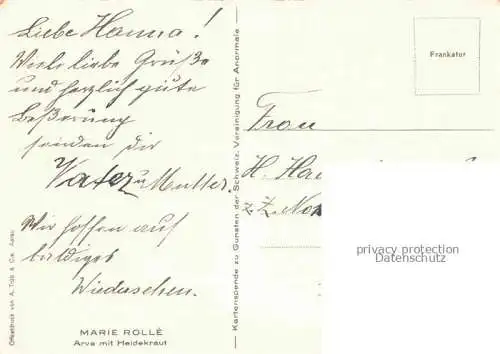 Liebe Hanna!
Viele liebe Grüße
und herzlich gute
Beßerung
senden dir
Vater u Mutter.
Wir hoffen auf
baldiges
Wiedersehen.
MARIE ROLLÈ
Arve mit Heidekraut
Offsetdruck von A. Trüb & Cie. Aarau
Kartenspende zu Gunsten der Schweiz. Vereinigung für Anormale
Frankatur
Frau
H.
z. Z.
privacy protection
Datenschutz